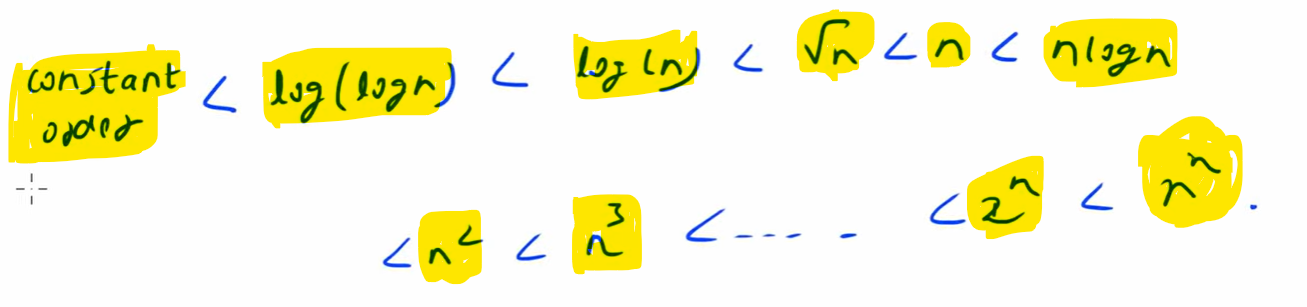 constant order < log(logn) < log(n) < √n < n < nlogn
< n² < n³ < ---- - < 2ⁿ < nⁿ.